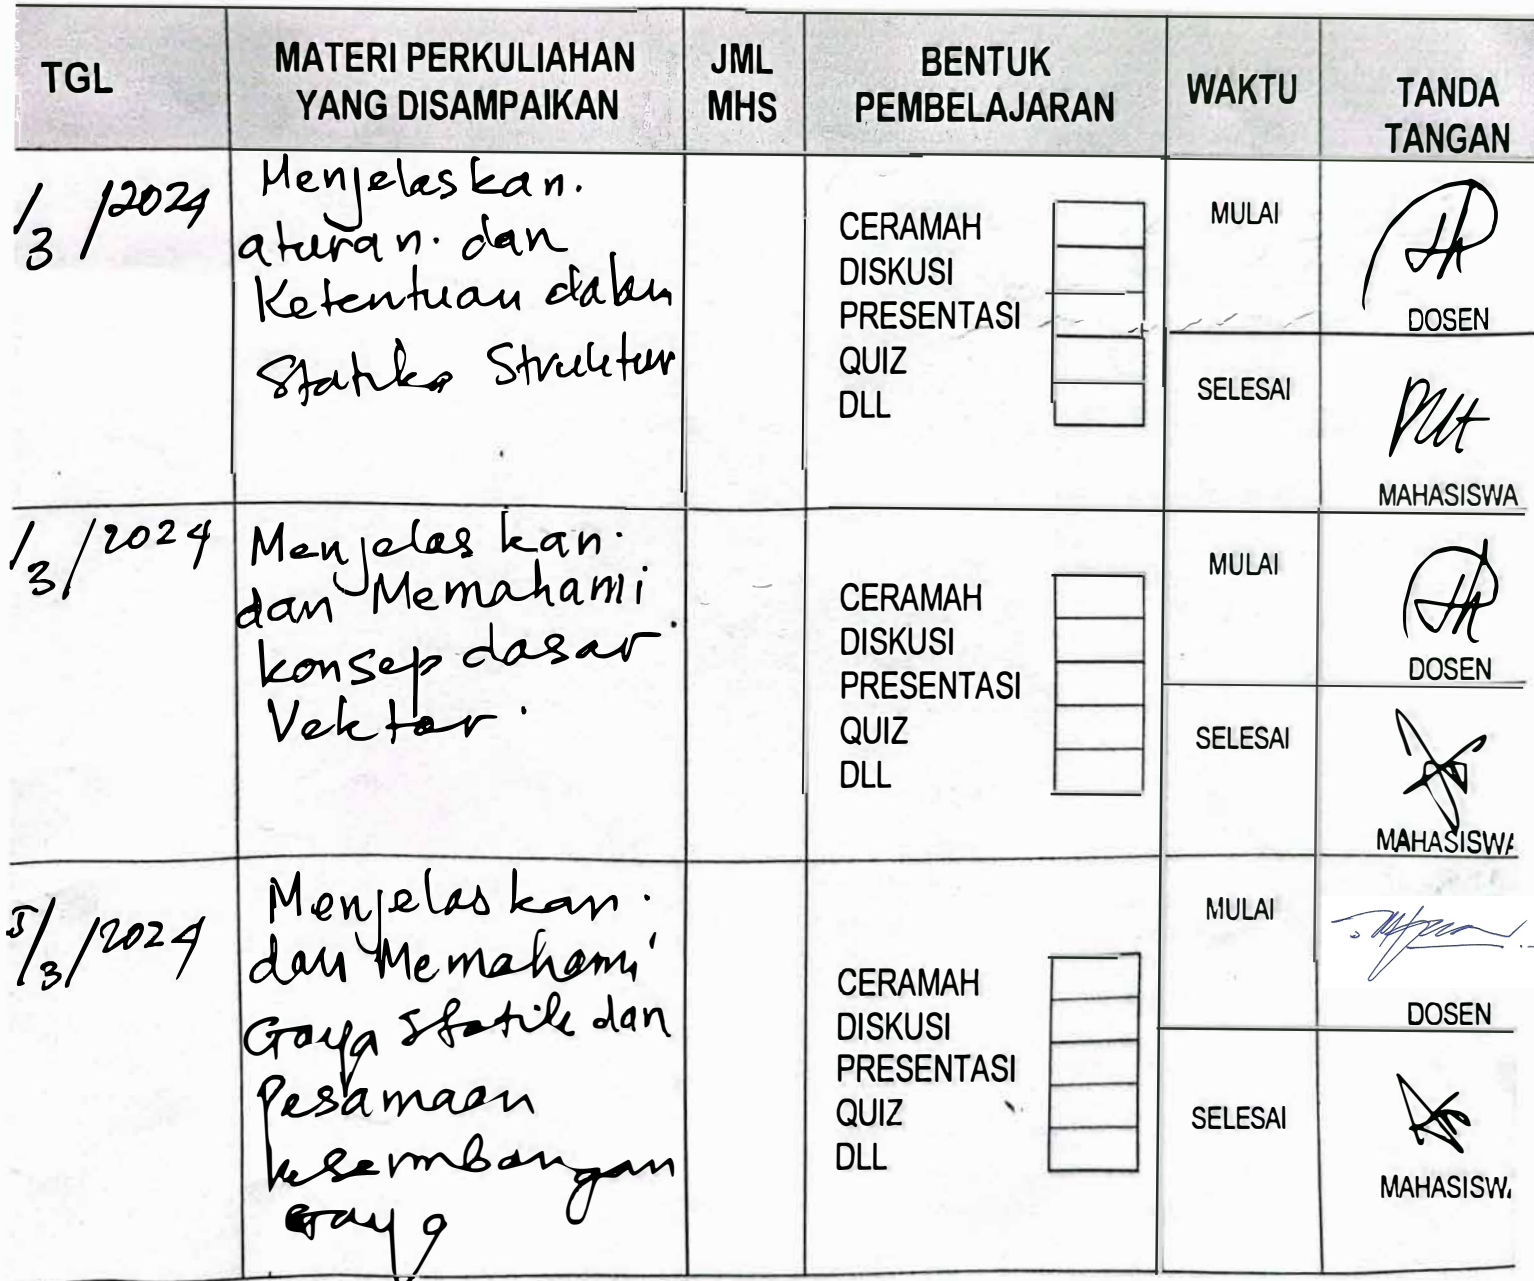 TGL
MATERI PERKULIAHAN
YANG DISAMPAIKAN
JML
MHS
BENTUK
PEMBELAJARAN
WAKTU
TANDA
TANGAN
1/3/2024
Menjelaskan.
aturan. dan
Ketentuan dalam
Statika Struktur
CERAMAH
DISKUSI
PRESENTASI
QUIZ
DLL
MULAI
DOSEN
SELESAI
MAHASISWA
1/3/2024
Menjelaskan.
dan Memahami
konsep dasar
Vektor.
CERAMAH
DISKUSI
PRESENTASI
QUIZ
DLL
MULAI
DOSEN
SELESAI
MAHASISWA
5/3/2024
Menjelaskan.
dan Memahami
Gaya Statik dan
Pesamaan
kesermbangan
Gaya
CERAMAH
DISKUSI
PRESENTASI
QUIZ
DLL
MULAI
DOSEN
SELESAI
MAHASISWA